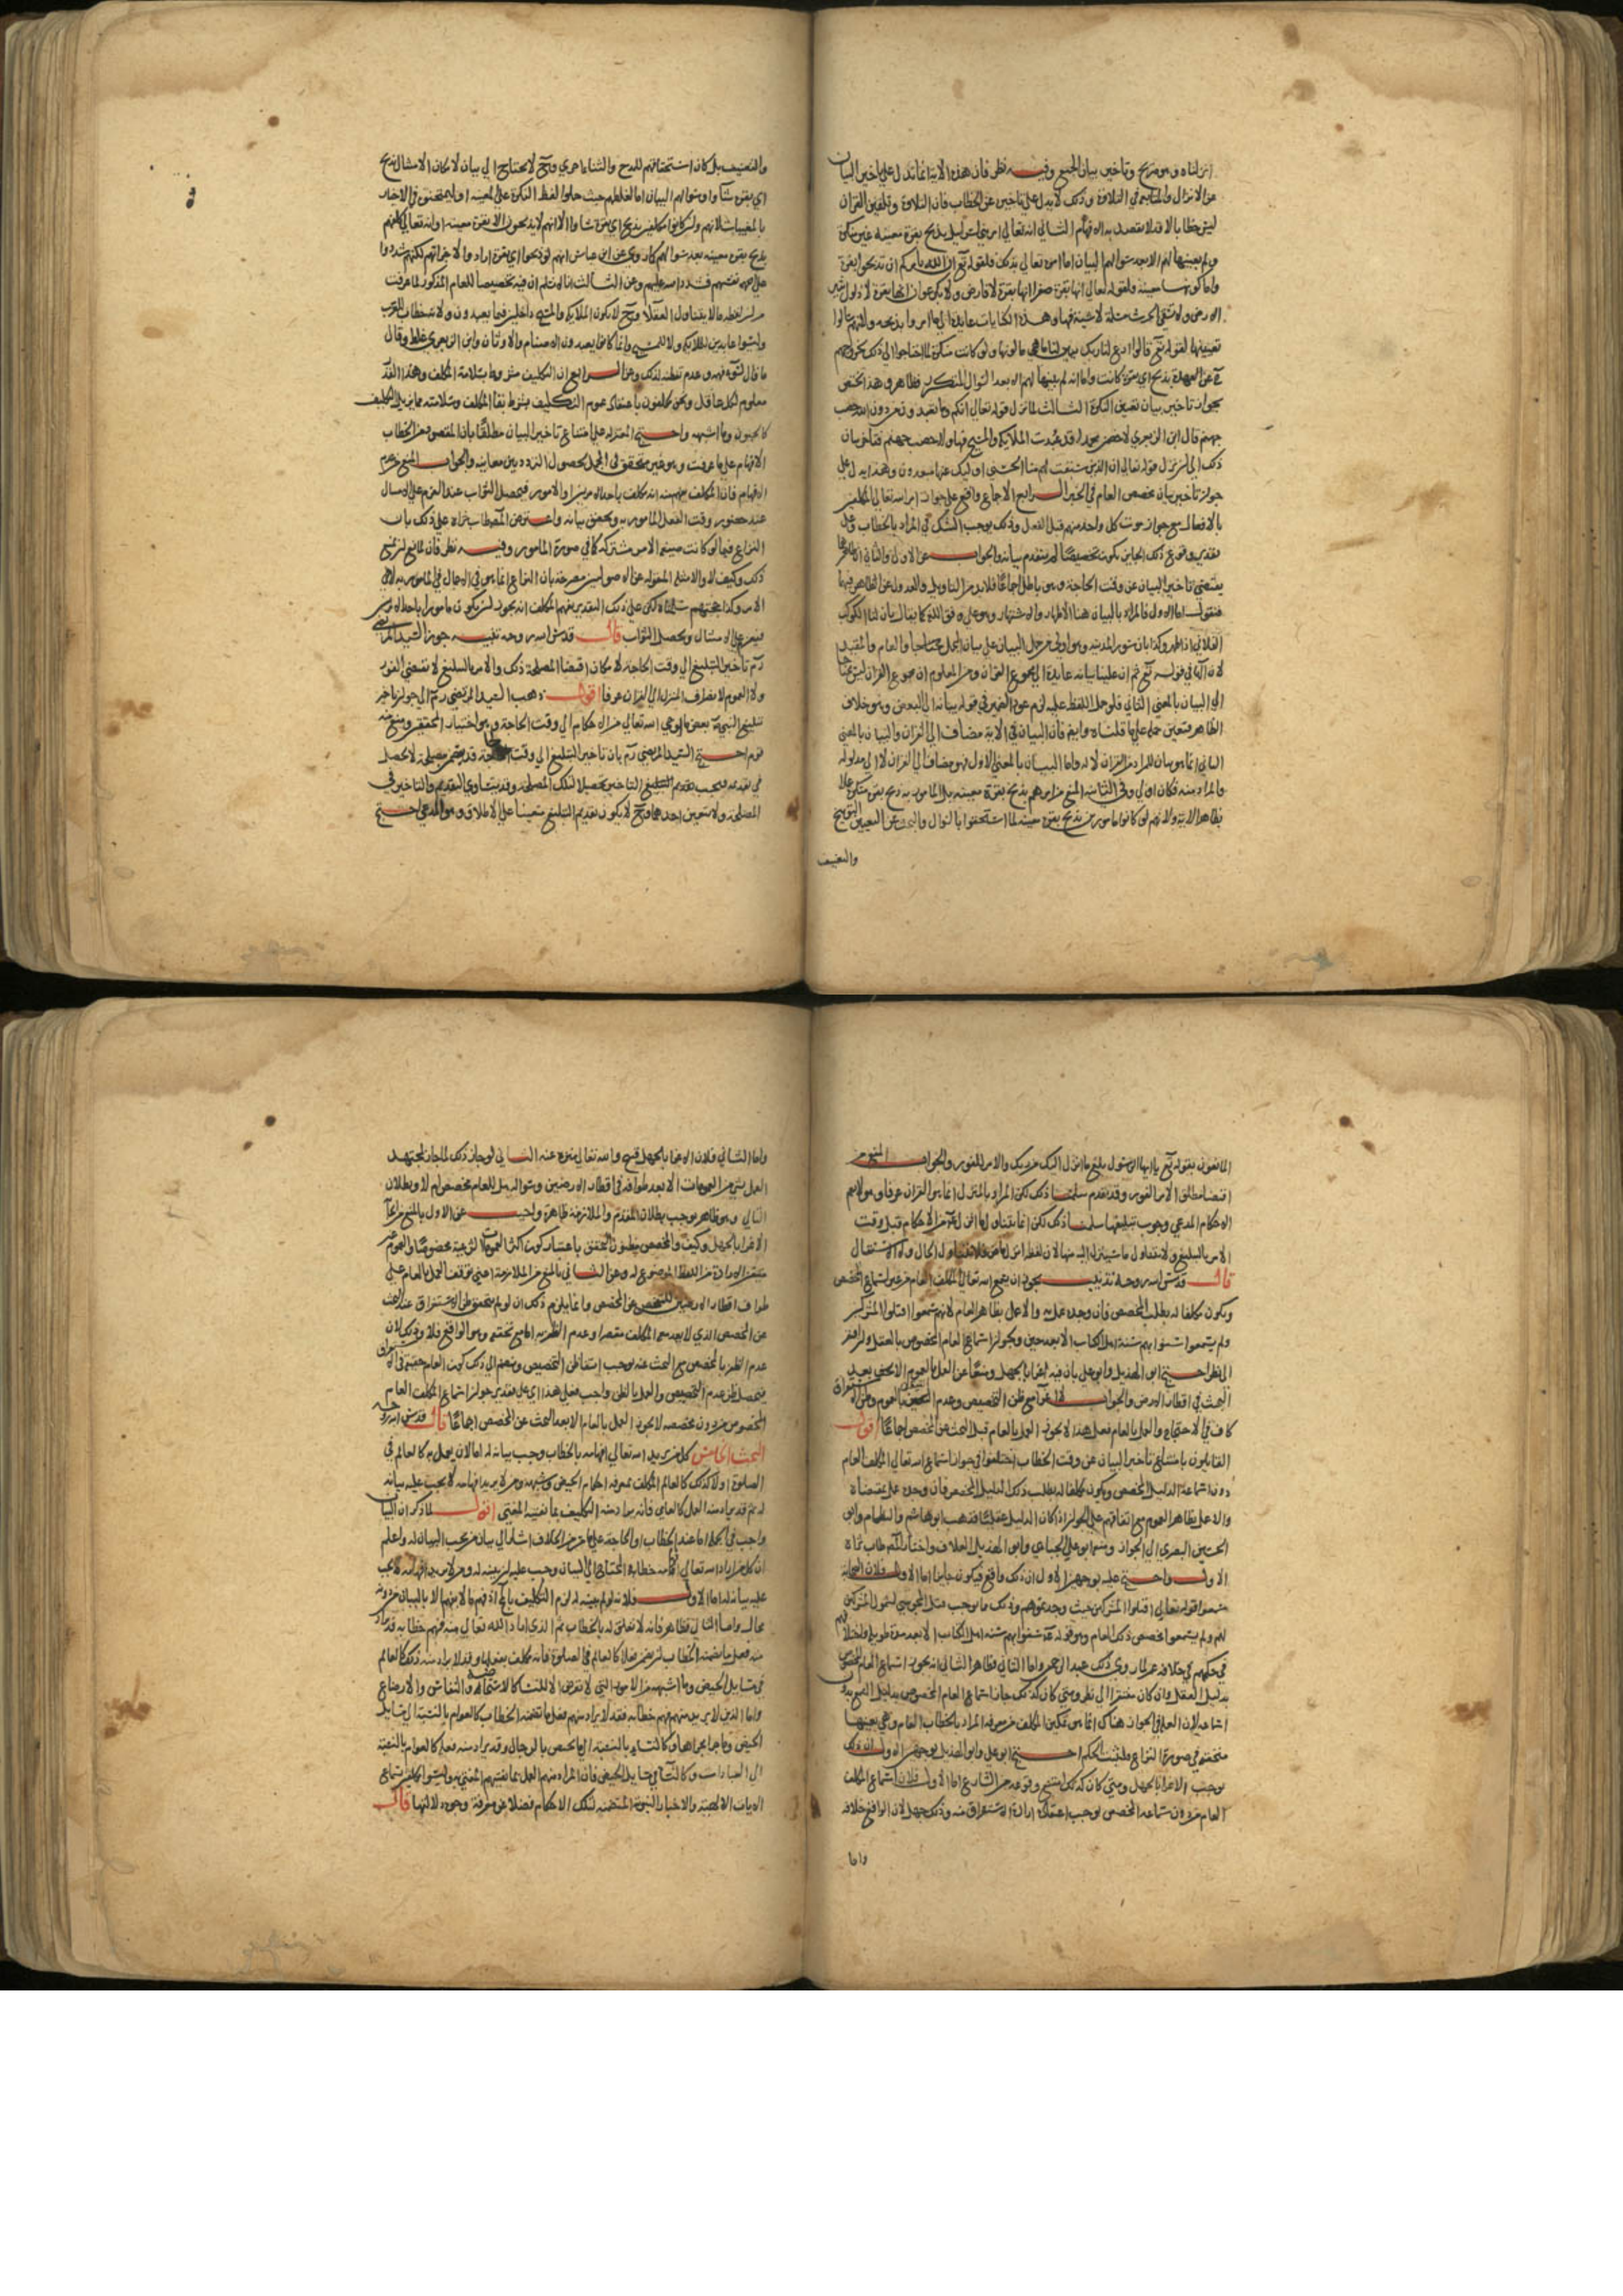 انزلناه وهو صريح وتاخير بيان الجميع وفيه نظر فان هذه الاية انما تدل على تاخير البيان
عن الانزال والمتابعة في التلاوة وذلك لا يدل على تاخير عن الخطاب فان التلاوة وتلقين القران
ليس خطابا لا يقصد به الافهام الثاني انه تعالى امر بني اسرائيل بذبح بقرة معينة غير منكرة
ولم يعينها لهم الا بعد سؤالهم البيان اما امره تعالى بذلك فلقوله تع ان الله يامركم ان تذبحوا بقرة
واما كونها معينة فلقوله تعالى انها بقرة صفرا انها بقرة لا فارض ولا بكر عوان انها بقرة لا ذلول تثير
الارض ولا تسقي الحرث مسلمة لا شية فيها وهذه الكنايات عايدة الى ما امروا بذبحه ولانهم سالوا
تعيينها لقوله تع قالوا ادع لنا ربك يبين لنا ما هي ما لونها ولو كانت منكرة لما احتاجوا الى ذلك لخروجهم
عن العهدة بذبح اي بقرة كانت واما انه لم يبينها لهم الا بعد السوال المتكرر فظاهر وهذا يختص
بجواز تاخير بيان تعيين النكرة الثالث لما نزل قوله تعالى انكم وما تعبدون من دون الله حصب
جهنم قال ابن الزبعري لاخصمن محمدا قد عبدت الملايكة والمسيح فهاولا حصب جهنم فتاخر بيان
ذلك الى ان نزل قوله تعالى ان الذين سبقت لهم منا الحسنى اوليك عنها مبعدون وهذا يدل على
جواز تاخير بيان مخصص العام في الخبر الرابع الاجماع واقع على جواز امر الله تعالى المكلفين
بالافعال مع جواز موت كل واحد منهم قبل الفعل وذلك يوجب الشك في المراد بالخطاب وعلى
تقدير وقوع ذلك الجايز يكون تخصيصا لم يتقدم بيانه والجواب عن الاول والثاني ان ظاهرهما
يقتضي تاخير البيان عن وقت الحاجة وهو باطل اجماعا فلا بد من التاويل والعدول عن الظاهر فيهما
فنقول اما الاول فالمراد بالبيان هنا الاظهار والاشتهار وهو على وفق اللغة كما يقال بان لنا الكوكب
الفلاني اذا ظهر وكذا بان سور المدينة وهو اولى من حمل البيان على بيان المجمل محتاجا والعام والمقيد
لان الها في قوله تع ثم ان علينا بيانه عايدة الى مجموع القران ومن المعلوم ان جميع القران ليس محتاجا
الى البيان بالمعنى الثاني فلو حمل اللفظ عليه لزم عود الضمير في قوله بيانه الى البعض وهو خلاف
الظاهر فتعين حمله على ما قلناه وايضا فان البيان في الاية مضاف الى القران والبيان بالمعنى
الثاني انما هو بيان للمراد من القران لا له واما البيان بالمعنى الاول فهو مضاف الى القران لا الى مدلوله
والمراد منه فكان اولى وفي الثاني المنع من امرهم بذبح بقرة معينة بل المامور به ذبح بقرة منكرة عملا
بظاهر الاية ولانهم لو كانوا مامورين بذبح بقرة معينة لما استحقوا بالسوال والبحث عن التعيين التوبيخ
والتعنيف
والتعنيف بل كان استحقاقهم للمدح والثناء احرى وح لا يحتاج الى بيان لامكان الامتثال بذبح
اي بقرة شاوا وسوالهم البيان اما لغلطهم حيث حملوا لفظ النكرة على المعينة
بذبح بقرة معينة بعد سوالهم كما روي عن ابن عباس انهم لو ذبحوا اي بقرة ارادوا لاجزاتهم لكنهم شددوا
على انفسهم فشدد الله عليهم وعن الثالث انا لا نسلم ان فيه تخصيصا للعام المذكور لما عرفت
من ان لفظة ما لا يتناول العقلاء وح لا يكون الملايكة والمسيح داخلين فيما يعبدون ولانه خطاب للعرب
وليسوا عابدين للملايكة ولا للمسيح وانما كانوا يعبدون الاصنام والاوثان وابن الزبعري غلط وقال
ما قال لسوء فهمه وعدم تفطنه لذلك وعن الرابع ان التكليف مشروط بسلامة المكلف وهذا القدر
معلوم لكل عاقل ونحن مكلفون باعتقاد عموم التكليف بشرط بقا المكلف وسلامته مما يزيل التكليف
كالجنون وما اشبهه واحتج المعتزلة على امتناع تاخير البيان مطلقا بان المقصود من الخطاب
الافهام على ما عرفت وهو غير متحقق في المجمل لحصول التردد بين معانيه والجواب المنع من عدم
الافهام فان المكلف يفهم منه انه مكلف باحد الامرين او الامور فيحصل الثواب عند العزم على الامتثال
عند حضور وقت الفعل المامور به وتحقق بيانه واعترض المص طاب ثراه على ذلك بان
النزاع فيما لو كانت صيغة الامر مشتركة كما في صورة المامور وفيه نظر
فيعزم على الامتثال ويحصل الثواب قال قدس الله روحه تنبيه جوز السيد المرتضى
رحمه تاخير التبليغ الى وقت الحاجة لامكان اقتضا المصلحة ذلك والامر بالتبليغ لا يقتضي الفور
ولا العموم لانصراف المنزل الى القران عرفا اقول ذهب السيد المرتضى رحمه الى جواز تاخير
تبليغ النبي ص بعض ما اوحي الله تعالى من الاحكام الى وقت الحاجة وهو اختيار المحققين ومنع منه
قوم احتج السيد المرتضى رحمه بان تاخير التبليغ الى وقت الحاجة قد يتضمن مصلحة لا تحصل
في تقديمه فيجب تقديم التاخير تحصيلا لتلك المصلحة وقد يتساوى التقديم والتاخير في
المصلحة ولا يتعين احدهما وح لا يكون تقديم التبليغ متعينا على الاطلاق وهو المدعى احتج
المانعون بقوله تع يا ايها الرسول بلغ ما انزل اليك من ربك والامر للفور والجواب المنع من
اقتضا مطلق الامر الفور وقد تقدم سلمنا ذلك لكن المراد بالمنزل انما هو القران عرفا
الاحكام المدعى وجوب تبليغها سلمنا ذلك لكن انما يتناول ما انزل اليه من الاحكام قبل وقت
الامر بالتبليغ ولا يتناول ما سينزل اليه منها لان لفظ انزل ماض فلا يتناول الحال ولا الاستقبال
قال قدس الله روحه تذنيب يجوز ان يسمع الله تعالى المكلف العام من غير اسماع المخصص
ويكون مكلفا له بطلب المخصص فان وجده عمل به والا عمل بظاهر العام لانهم سمعوا اقتلوا المشركين
ولم يسمعوا سنوا بهم سنة اهل الكتاب الا بعد حين ويجوز اسماع العام المخصوص بالعقل
النظر احتج ابو الهذيل وابو علي بان فيه اغرا بالجهل ومنعا عن العمل بالعموم الا بعد
البحث في اقطار الارض والجواب لا اغرا مع ظن التخصيص
كاف في الاحتجاج والعمل بالعام فعلى هذا لا يجوز العمل بالعام قبل البحث عن المخصص اجماعا اقول
القايلون بامتناع تاخير البيان عن وقت الخطاب اختلفوا في جواز اسماع الله تعالى المكلف العام
دون اسماعه الدليل المخصص ويكون مكلفا له بطلب ذلك الدليل المخصص فان وجده عمل بمقتضاه
والا عمل بظاهر العموم مع اتفاقهم على الجواز اذا كان الدليل عقليا فذهب ابو هاشم والنظام وابو
الحسين البصري الى الجواز ومنعه ابو علي الجبائي وابو الهذيل العلاف واختار المص طاب ثراه
الاول واحتج عليه بوجهين الاول ان ذلك واقع فيكون جايزا اما الاول فلان الصحابة
سمعوا قوله تعالى اقتلوا المشركين حيث وجدتموهم وذلك ما يوجب قتل المجوس لشمول المشركين
لهم ولم يسمعوا مخصص ذلك العام وهو قوله ع سنوا بهم سنة اهل الكتاب الا بعد مدة طويلة
في حكمهم في خلافة عمر لما روى ذلك عبد الرحمن واما الثاني فظاهر الثاني انه يجوز اسماع العام المخصوص
بدليل العقل وان كان مفتقرا الى نظر ومتى كان كذلك جاز اسماع العام المخصوص بدليل السمع بدون
اسماعه لان العلة في الجواز هناك انما هو تمكين المكلف من معرفة المراد بالخطاب العام وهي بعينها
متحققة في صورة النزاع فيثبت الحكم احتج ابو علي وابو الهذيل بوجهين الاول ان ذلك
يوجب الاغرا بالجهل ومتى كان كذلك امتنع وقوعه من الشارع اما الاول فلان اسماع المكلف
العام من دون سماعه المخصص يوجب اعتقاد ارادة الاستغراق منه وذلك جهل لان الواقع خلافه
واما
واما الثاني فلان الاغرا بالجهل قبيح والله تعالى منزه عنه الثاني لو جاز ذلك لما جاز للمجتهد
العمل بشي من العمومات الا بعد طوافه في اقطار الارضين وسواله هل للعام مخصص ام لا وبطلان
التالي وهو ظاهر يوجب بطلان المقدم والملازمة ظاهرة واجيب عن الاول بالمنع من
الاغرا بالجهل وكيف والمخصص مظنون التحقق باعتبار كون اكثر العمومات الشرعية مخصوصا
الثاني بالمنع من الملازمة اعني توقف العمل بالعام على
عدم الظفر بالمخصص مع البحث عنه يوجب انتفاء ظن التخصيص وينضم الى ذلك كون العام حقيقة في
فيحصل ظن عدم التخصيص والعمل بالظن واجب فعلى هذا اي على تقدير جواز اسماع المكلف العام
المخصوص من دون مخصصه لا يجوز العمل بالعام الا بعد البحث عن المخصص اجماعا قال قدس الله روحه
البحث الخامس كل من يريد الله تعالى افهامه بالخطاب وجب بيانه له اما لان يعمل به كالعالم في
الصلوة او لا كذلك كالعالم المكلف بمعرفة احكام الحيض وشبهه ومن لا يريد افهامه لا يجب عليه بيانه
له ثم قد يراد منه العمل كالعامي فانه يراد منه التكليف بما يفتيه المفتي اقول لما ذكر ان البيان
واجب في الجملة اما عند الخطاب او الحاجة على ما مر من الخلاف اشار الى بيان من يجب البيان له واعلم
ان كل من اراد الله تعالى افهامه خطابه المحتاج الى البيان وجب عليه ان يبينه له ومن لا يريد افهامه لا يجب
عليه بيانه له اما الاول فلانه لو لم يبينه له لزم التكليف بالمح اذ فهم ما لا يفهم الا بالبيان من دونه
محال واما الثاني فظاهر فانه لا تعلق له بالخطاب ثم الذي اراد الله تعالى منه فهم خطابه قد يراد
منه فعل ما تضمنه الخطاب كالعالم في الصلوة فانه مكلف بفعلها وقد لا يراد منه ذلك كالعالم
في مسايل الحيض وما اشبهه من الامور التي لا تعرض الا للنساء كالاستحاضة والنفاس والارضاع
واما الذين لا يريد منهم فهم خطابه فقد لا يراد منهم فعل ما تضمنه الخطاب كالعوام بالنسبة الى مسايل
الحيض وما جرى مجراها وكالنساء بالنسبة الى ما يختص بالرجال وقد يراد منه فعله كالعوام بالنسبة
الى العبادات وكالنساء في مسايل الحيض فان المراد منهم العمل بما يفتيهم المفتي وليسوا مكلفين بسماع
الايات الالهية والاخبار النبوية المتضمنة لتلك الاحكام فضلا عن معرفة وجوه دلالتها قال